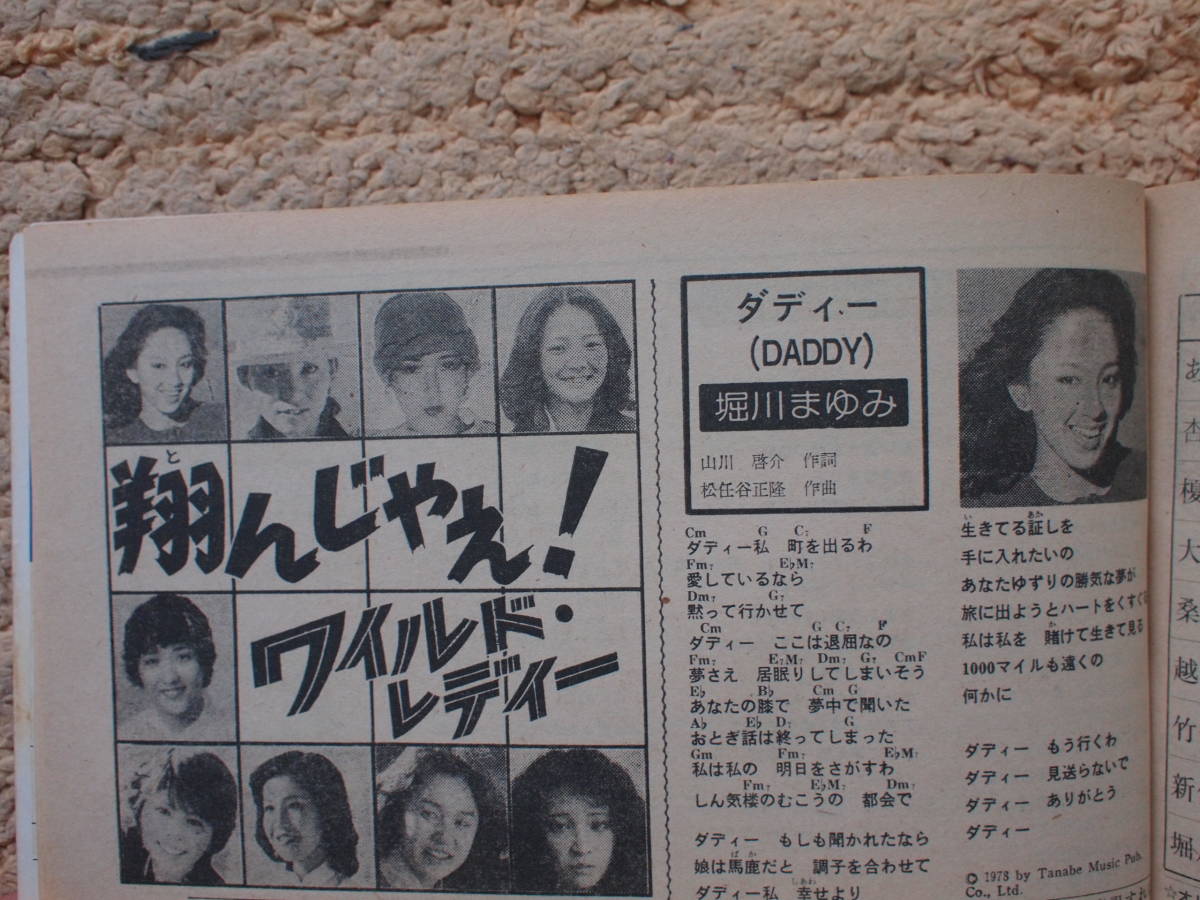 翔んじゃえ!
と
ワイルド・
レディー
ダディー
(DADDY)
堀川まゆみ
山川 啓介 作詞
松任谷正隆 作曲
Cm G C7 F
ダディー私 町を出るわ
Fm7 E♭M7
愛しているなら
Dm7 G7
黙って行かせて
Cm G C7 F
ダディー ここは退屈なの
Fm7 E7M7 Dm7 G7 CmF
夢さえ 居眠りしてしまいそう
E♭ B♭ Cm G
あなたの膝で 夢中で聞いた
A♭ E♭ D7 G
おとぎ話は終ってしまった
Gm Fm7 E♭M7
私は私の 明日をさがすわ
Fm7 E♭M7 Dm7
しん気楼のむこうの 都会で
ダディー もしも聞かれたなら
ばか
娘は馬鹿だと 調子を合わせて
しあわ
ダディー私 幸せより
い あか
生きてる証しを
手に入れたいの
あなたゆずりの勝気な夢が
旅に出ようとハートをくすぐ
か
私は私を 賭けて生きて見る
1000マイルも遠くの
何かに
ダディー もう行くわ
ダディー 見送らないで
ダディー ありがとう
ダディー
© 1978 by Tanabe Music Pub.
Co., Ltd.
あ
杏
榎
大
桑
越
竹
新
堀